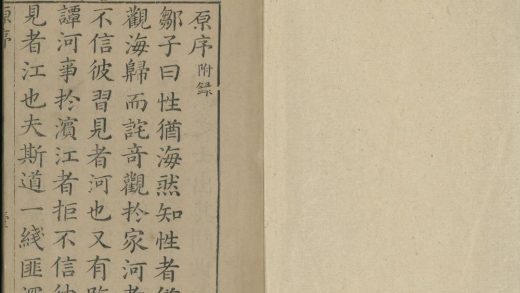 原序附録
鄒子曰性猶海然知性者
觀海歸而詫奇觀扵家河
不信彼習見者河也又有
譚河事扵濵江者拒不信
見者江也夫斯道一綫匪
原序